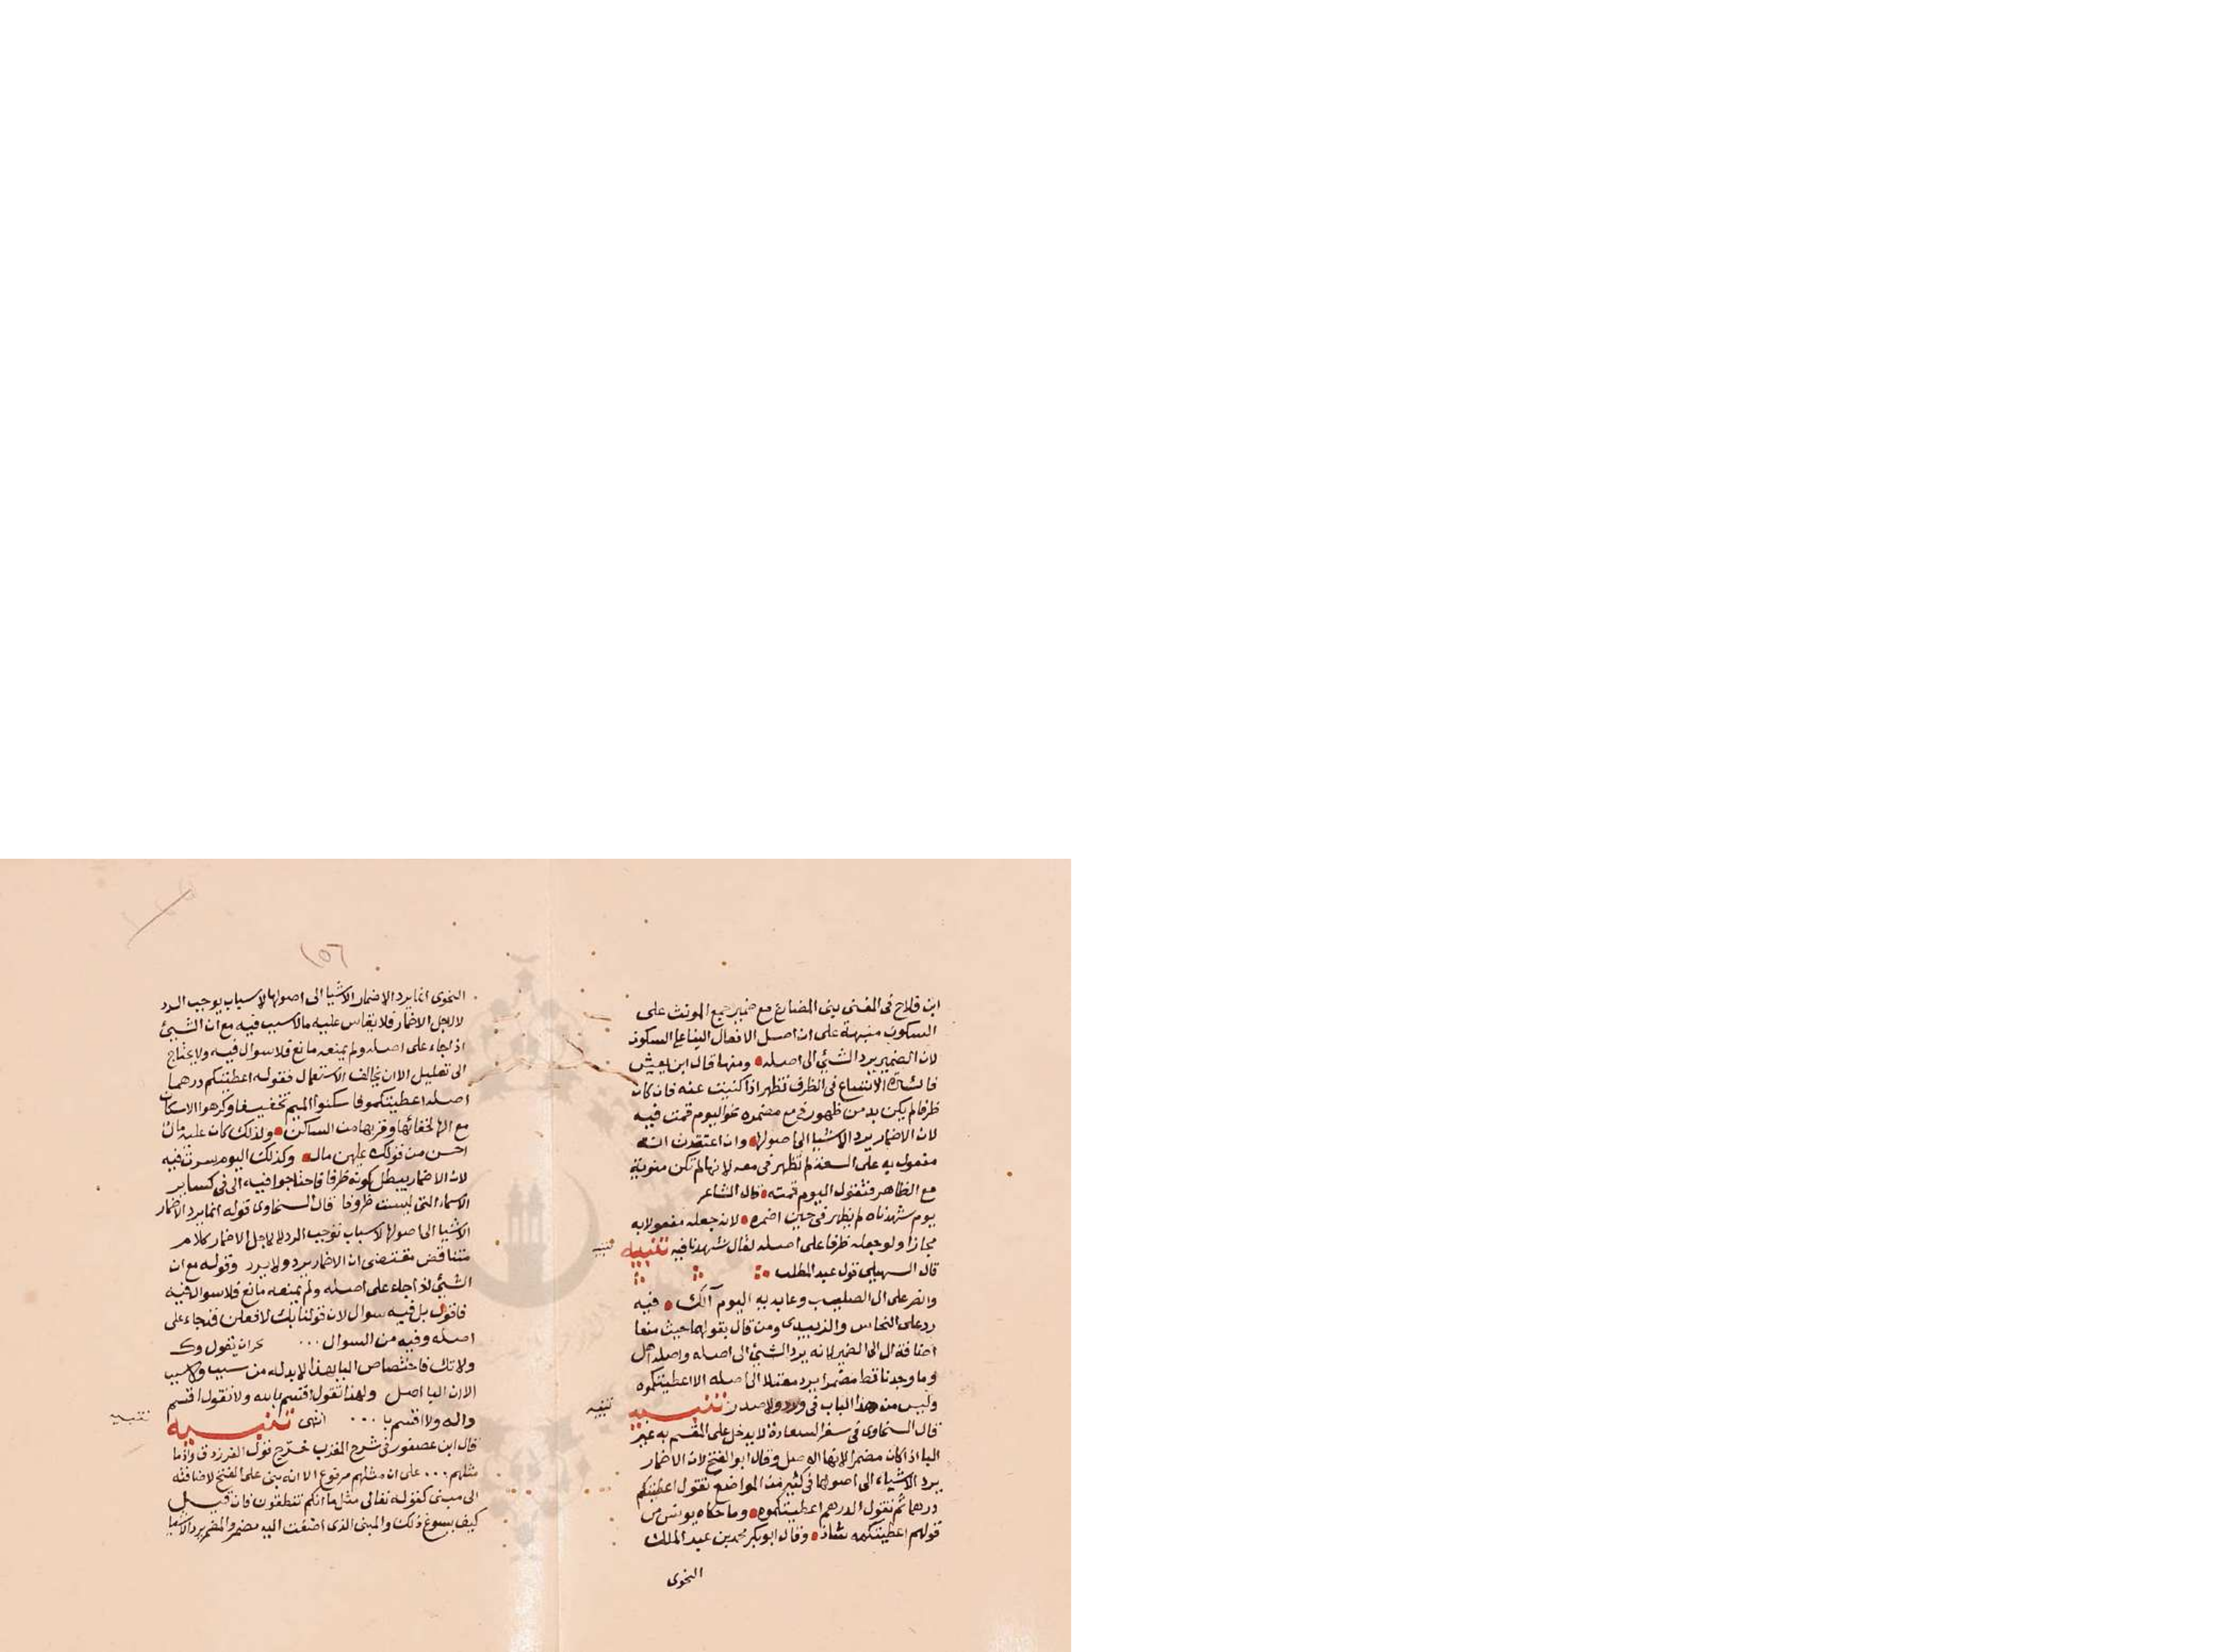 ابن فلاح فى المغنى بنى المضارع مع ضمير جمع المونث على
السكون منبهة على ان اصل الافعال البناء على السكون
لان الضمير يرد الشئ الى اصله ومنها قال ابن يعيش
الاتساع فى الظرف تظهر اذا كنيت عنه فان كان
ظرفا لم يكن بد من ظهور فى مع مضمره نحو اليوم قمت فيه
لان الاضمار يرد الاشيا الى اصولها وان اعتقدت انه
مفعول به على السعة لم تظهر فى معه لانها لم تكن منوية
مع الظاهر فتقول اليوم قمته قال الشاعر
يوم شهدناه لم يظهر فى حين اضمره لانه جعله مفعولا به
مجازا ولو جعله ظرفا على اصله لقال شهدنا فيه تنبيه
تنبيه
قال السهيلى قول عبد المطلب
وانصر على ال الصليب وعابديه اليوم آلك فيه
رد على النحاس والزبيدى ومن قال بقولهما حيث منعا
اضافة ال الى الضمير لانه يرد الشئ الى اصله واصله اهل
وما وجدنا قط مضمرا يرد معتلا الى اصله الا اعطيتكموه
وليس من هذا الباب فى ورد ولا صدر تنبيه
تنبيه
قال السخاوى فى سفر السعادة لا يدخل على المقسم به غير
البا اذا كان مضمرا لانها الاصل وقال ابو الفتح لان الاضمار
يرد الاشياء الى اصولها فى كثير من المواضع تقول اعطيتكم
درهما ثم تقول الدرهم اعطيتكموه وما حكاه يونس من
قولهم اعطيتكمه شاذ وقال ابو بكر محمد بن عبد الملك
النحوى
١٥٦
النحوى انما يرد الاضمار الاشيا الى اصولها لاسباب يوجب الرد
لا لاجل الاضمار فلا يقاس عليه ما لا سبب فيه مع ان الشئ
اذا جاء على اصله ولم يمنعه مانع فلا سوال فيه ولا يحتاج
الى تعليل الا ان يخالف الاستعمال فقوله اعطيتكم درهما
اصله اعطيتكمو فاسكنوا الميم تخفيفا وكرهوا الاسكان
مع الها لخفائها وقربها من الساكن ولذلك كان عليه مال
احسن من قولك عليهن مال وكذلك اليوم سرت فيه
لان الاضمار يبطل كونه ظرفا فاحتاجوا فيه الى فى كساير
الاسماء التى ليست ظروفا قال السخاوى قوله انما يرد الاضمار
الاشيا الى اصولها لاسباب توجب الرد لا لاجل الاضمار كلام
متناقض مقتضى ان الاضمار يرد ولا يرد وقوله مع ان
الشئ اذا جاء على اصله ولم يمنعه مانع فلا سوال فيه
فاقول بل فيه سوال لان قولنا بك لافعلن فجاء على
اصله وفيه من السوال ان يقول وك
ولا تك فاختصاص البا بهذا لا بد له من سبب ولا سبب
الا ان البا اصل ولهذا تقول اقسم بالله ولا تقول اقسم
والله ولا اقسم با انتهى تنبيه
تنبيه
قال ابن عصفور فى شرح المقرب خرج قول الفرزدق واذ ما
مثلهم على ان مثلهم مرفوع الا انه بنى على الفتح لاضافته
الى مبنى كقوله تعالى مثل ما انكم تنطقون فان قيل
كيف يسوغ ذلك والمبنى الذى اضيفت اليه مضمر والمضمر يرد الاشيا